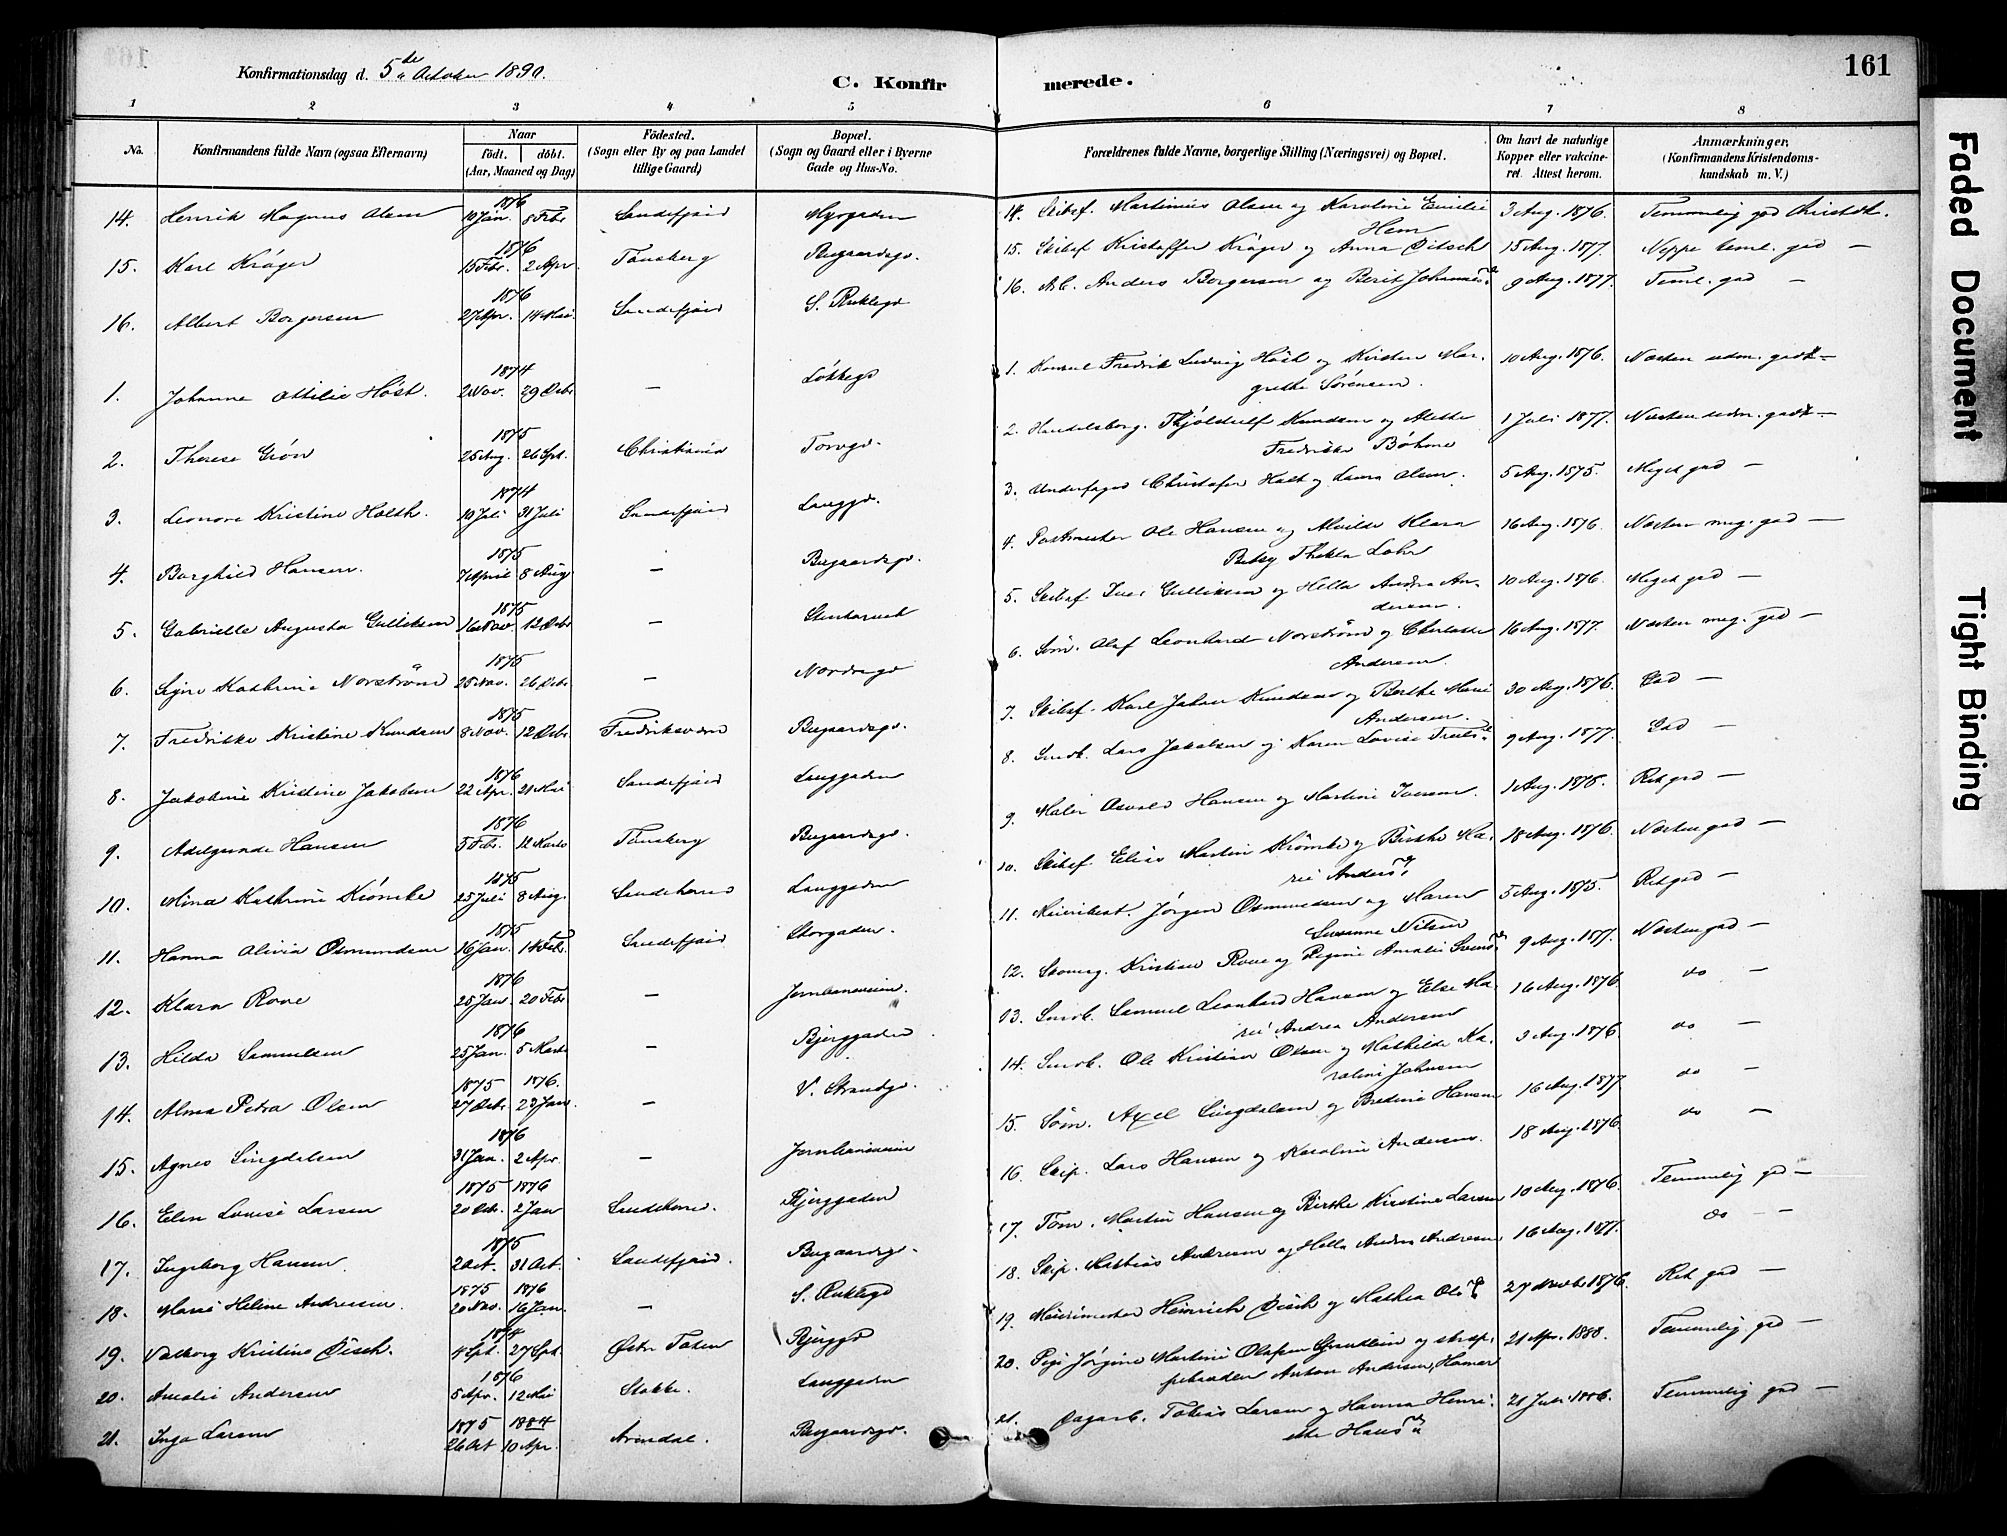 161
Konfirmationsdag d. 5te October 1890.
C. Konfirmerede.
1 2 3 4 5 6 7 8
No.
Konfirmandens fulde Navn (ogsaa Efternavn)
Naar
födt. döbt.
(Aar, Maaned og Dag)
Födested.
(Sogn eller By og paa Landet
tillige Gaard)
Bopæl.
(Sogn og Gaard eller i Byerne
Gade og Hus-No.
Forældrenes fulde Navne, borgerlige Stilling (Næringsvei) og Bopæl.
Om havt de naturlige
Kopper eller vakcine-
ret. Attest herom.
Anmærkninger,
(Konfirmandens Kristendoms-
kundskab m. V.)
1876
14. Henrik Magnus Olsen 19 Jan. 8 Febr Sandefjord Myrgaden 14. Skibsf. Martinius Olsen og Karoline Emilie 3 Aug. 1876. Temmelig god Christdk.
Hem
1876
15. Karl Kröger 15 Febr. 2 Apr Tönsberg Bugaardsgd. 15. Skibsf Kristoffer Kröger og Anna Ditsch 15 Aug. 1877. Neppe teml. god —
1876
16. Albert Borgersen 27 Apr. 14 Mai Sandefjord S. Ruklegd 16. Arb. Anders Borgersen og Berit Johannesd. 9 Aug. 1877. Teml. god —
1874
1. Johanne Ottilie Höst. 2 Nov. 29 Debr — Lökkegd 1. Konsul Fredrik Ludvig Höst og Kirsten Mar- 10 Aug. 1876. Næsten udm. godt —
grethe Sörensen.
1875
2. Therese Grön 25 Aug. 26 Spt. Christiania Torvgd. 2. Handelsborg. Thjöldulf Knudsen og Alette 1 Juli 1877. Næsten udm. godt —
Fredrikke Böhme
1874
3. Leonore Kristine Holth. 19 Juli 31 Juli Sandefjord Langgd. 3. Underfoged Christofer Holt og Laura Olsen. 5 Aug. 1875. Meget god —
1875
4. Borghild Hansen. 7 April 8 Aug — Bugaardsgd. 4. Postmester Ole Hansen og Alvilde Klara 16 Aug. 1876. Næsten meg. god —
Betsy Thekla Lohr
1875
5. Gabrielle Augusta Gulliksen 16 Nov 12 Debr — 5. Skibsf. Iver Gulliksen og Hella Andrea An- 10 Aug. 1876. Meget god —
dersen.
1875
6. Signe Kathrine Norström 25 Nov. 26 Debr — Nordregd 6. Söm. Olaf Leonhard Norström og Charlotte 16 Aug. 1877. Næsten meg. god —
Andersen.
1875
7. Fredrikke Kristine Knudsen 8 Nov. 12 Debr. Fredriksværn Bugaardsgd. 7. Skibsf. Karl Johan Knudsen og Berthe Marie 30 Aug. 1876. God —
Andersen.
1876
8. Jakobine Kristine Jakobsen 22 Apr. 21 Mai Sandefjord Langgaden 8. Smed. Lars Jakobsen og Karen Lovise 9 Aug. 1877. God —
1876
9. Adelgunde Hansen 5 Febr. 12 Marts Tönsberg Bugaardsgd. 9. Maler Osvald Hansen og Martine Iversen. 1 Aug. 1878. Ret god —
1875
10. Mina Kathrine Krömke 25 Juli 8 Aug. Sandeherred Langgaden 10. Skibsf. Elias Martin Krömke og Birthe Ma- 18 Aug. 1876. Næsten god —
rie Andersd.
1875
11. Hanna Olivia Osmundsen 16 Jan. 14 Febr. Sandefjord Storgaden. 11. Jörgen Osmundsen og Maren 5 Aug. 1875. Ret god —
Susanne Nilsen
1876
12. Klara Rove 25 Jan. 20 Febr — Jernbaneveien. 12. Skomag. Kristian Rove og Regine Amalie Svendsd. 9 Aug. 1877. Næsten god —
1876
13. Hilda Samuelsen 25 Jan. 5 Marts — Bjerggaden 13. Smed. Samuel Leonhard Hansen og Else Ma- 16 Aug. 1876. do —
rie Andrea Andersen
1875 1876.
14. Alma Petra Olsen 27 Debr. 23 Jan. — V. Strandgd. 14. Smed. Ole Kristian Olsen og Mathilde Ka- 3 Aug. 1876. do —
roline Johnsen
1876
15. Agnes Lingdalsen 31 Jan. 2 Apr. — Jernbaneveien 15. Söm. Axel Lingdalsen og Bredine Hansen 16 Aug. 1877 do —
1875 1876
16. Elen Lovise Larsen 20 Debr. 2 Jan Sandeherred. Bjerggaden 16. Skip. Lars Hansen og Karoline Andersen. 18 Aug. 1876. do —
1875
17. Ingeborg Hansen 2 Oct. 31 Oct. Sandefjord. Bugaardsgd. 17. Töm. Martin Hansen og Birthe Kirstine Larsen 10 Aug. 1876. Temmelig god —
1875 1876
18. Marie Heline Andresen. 20 Nov. 16 Jan. — S. Ruklegd 18. Skip. Mathias Andresen og Hella Andrea Andresen 16 Aug. 1877. do —
1874
19. Valborg Kristine Disch. 4 Spt. 27 Spt. Östre Toten Bjerggd 19. Meierimester Heinrich Disch og Mathea Olsd. 27 Novbr 1876. Ret god —
1876
20. Amalie Andersen 5 Apr. 12 Mai Stokke. Langgaden 20. Pige Jörgine Martine Olafsen Grindlein og 21 Apr. 1888. Temmelig god —
Anton Andersen, Hamar
1875 1884
21. Inga Larsen 26 Oct 10 Apr. Arendal. Bugaardsgd. 21. Dagarb. Tobias Larsen og Hanna Henri- 21 Juli 1886. Temmelig god —
ette Hansd.
Faded Document
Tight Binding